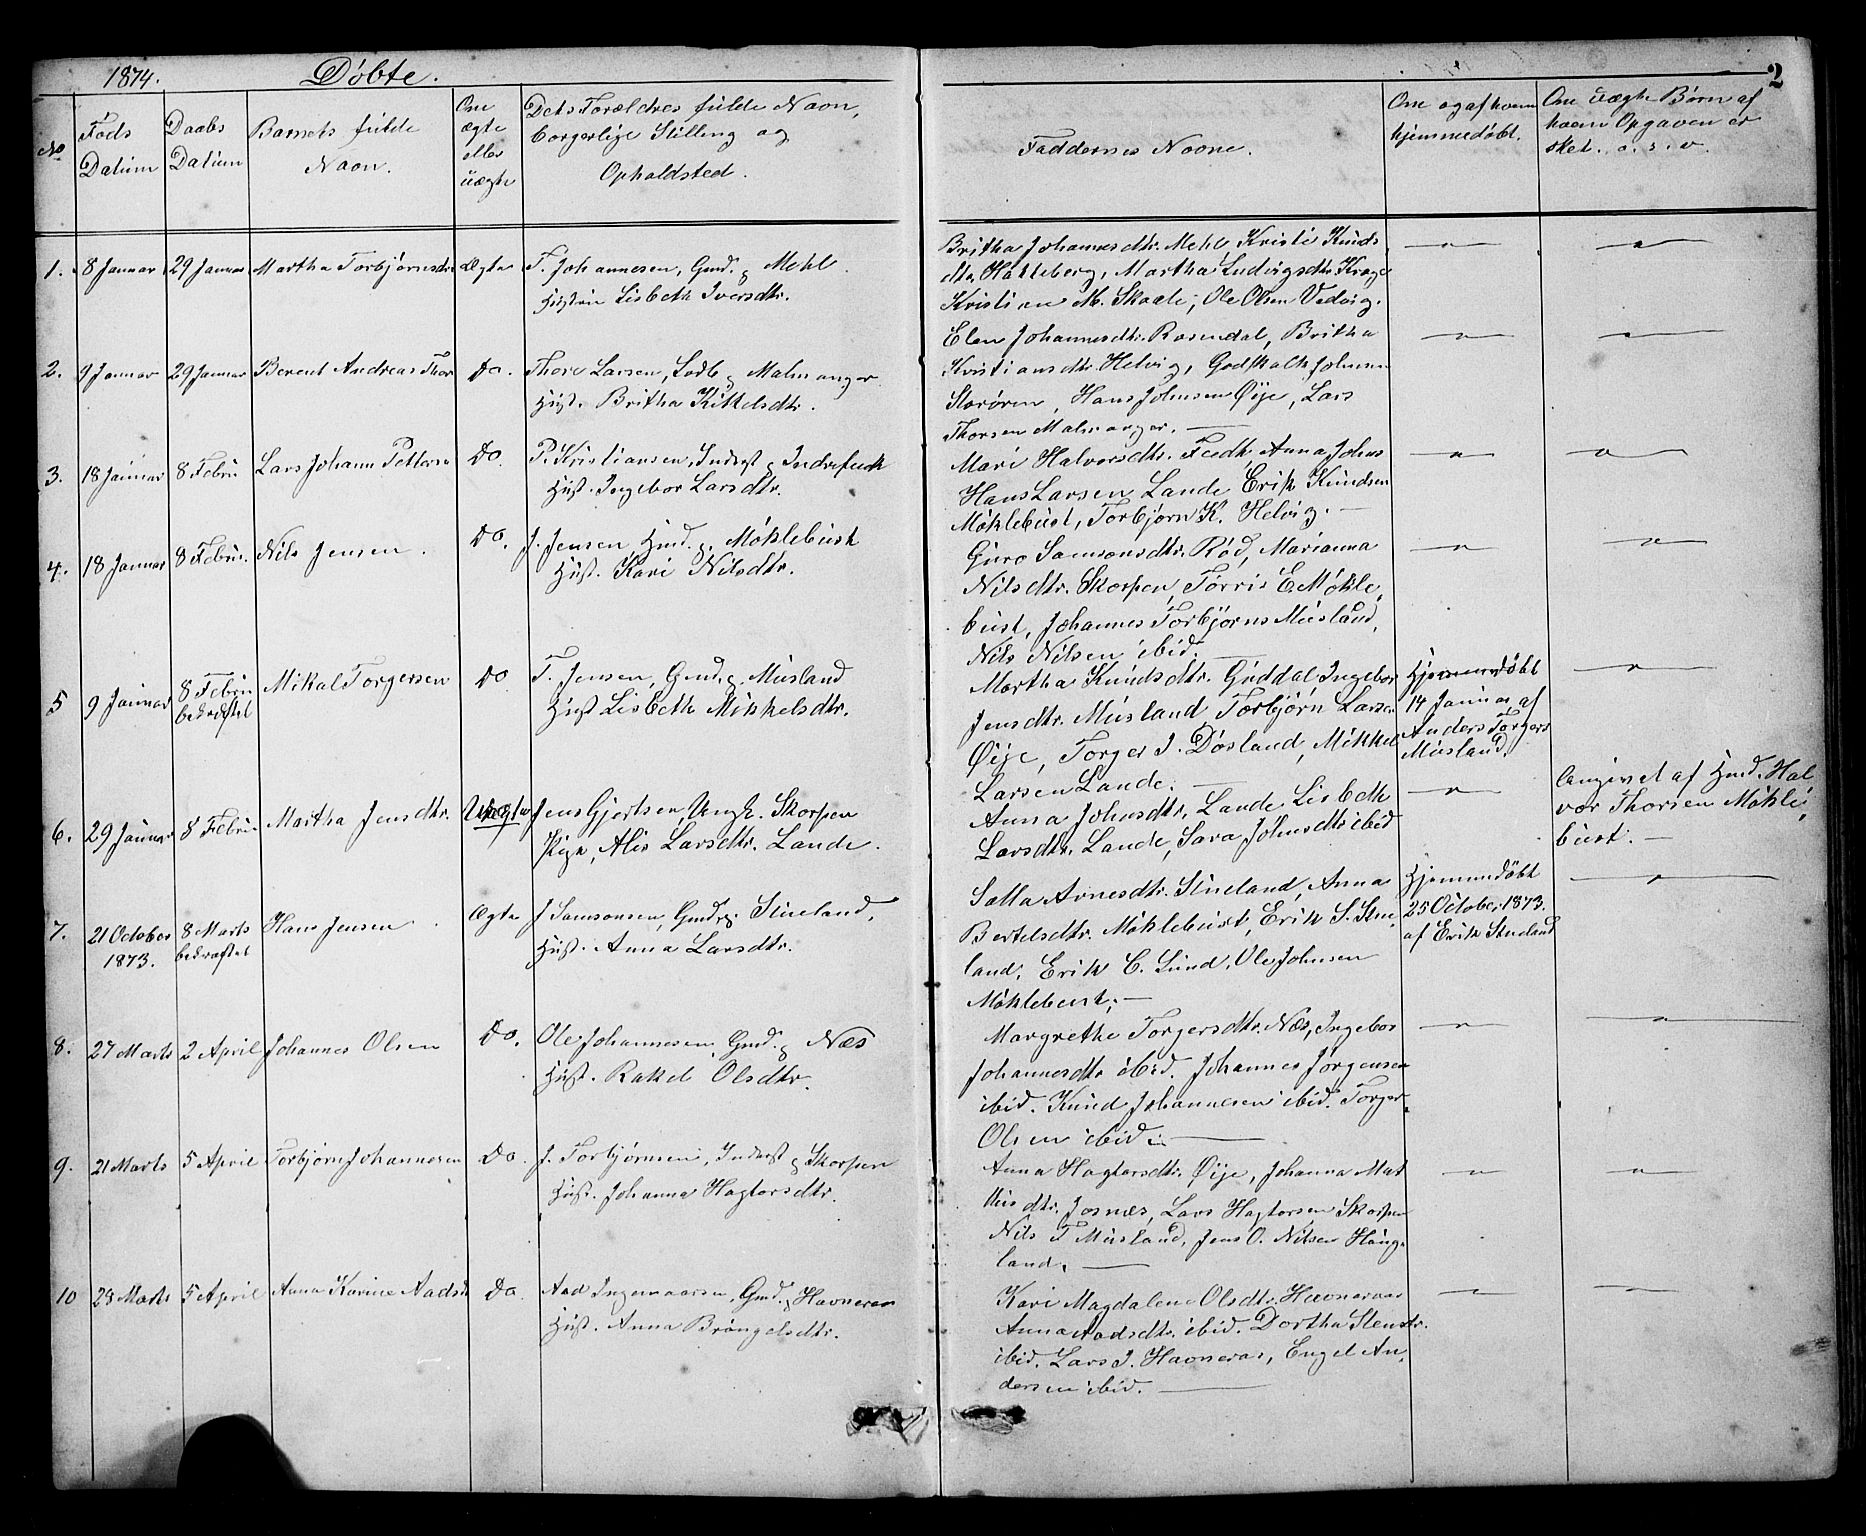 1874. Döbte. 2
No
Föds Datum
Daabs Datum
Barnets fulde Navn.
Om ægte eller uægte
Dets Forældres fulde Navn, borgerlige Stilling og Opholdsted.
Faddernes Navne.
Om og af hvem hjemmedöbt.
Om uægte Börn af hvem Opgaven er sket. o. s. v.
1. 8 Januar 29 Januar Martha Torbjörnsdtr Ægte T. Johannesen, Gmd. g Mehl
Hustru Lisbeth Iversdtr.
Britha Johannesdtr. Mehl Kristi Knuds
dtr. Hatteberg, Martha Ludvigsdtr. Krage
Kristian M. Skaale, Ole Olsen Vedvig.
2. 9 Januar 29 Januar Berent Andreas Thor Do. Thore Larsen, Lodb g Malmanger
Hust. Britha Kittelsdtr.
Elen Johannesdtr. Rosendal, Britha
Kristiansdtr. Helvig, Godskalk Johnsen
Storören, Hans Johnsen Öije, Lars
Thorsen Malmanger. —
3. 18 Januar 8 Febru Lars Johann Pettersen Do. P. Kristiansen, Inderst g Indrefuck
Hust. Ingebor Larsdtr.
Mari Halvorsdtr. Anna Johns
Hans Larsen Lande, Erik Knudsen
Möklebust, Torbjörn K. Helvig. —
4. 18 Januar 8 Febru. Nils Jensen. Do. J. Jensen Hmd. g. Möklebust
Hust. Kari Nilsdtr.
Guro Samsonsdtr. Röd, Marianna
Nilsdtr. Skorpen, Torris E. Mökle,
bust, Johannes Torbjörns Musland,
Nils Nilsen ibid. —
5 9 Januar 8 Febru bedræftet Mikal Torgersen Do T. Jensen, Gmd. g Musland
Hust Lisbeth Mikkelsdtr.
Martha Knudsdtr. Guddal Ingebor
Jensdtr. Musland Torbjörn Larsen
Öije, Torger J. Dösland, Mikkel
Larsen Lande. —
Hjemmedöbt
14 Januar af
Anders Torgers
Musland
6. 29 Januar 8 Febru Martha Jensdtr. Uægte Jens Gjertsen, Ungk. Skorpen
Pige, Alis Larsdtr. Lande.
Anna Johnsdtr. Lande Lisbeth
Larsdtr. Lande, Sara Johnsdtr ibid
angivet af Hmd. Hal,
vor Thorsen Möklé,
bust. —
7. 21 October 1873. 8 Marts bedræftet Hans Jensen Ægte J Samsonsen, Gmdsg. Stueland,
Hust. Anna Larsdtr.
Salla Arnesdtr. Stueland, Anna
Bertelsdtr. Möklebust, Erik S. Stue,
land, Erik C. Lund, Ole Johnsen
Möklebust; —
Hjemmedöbt
25 October 1873.
af Erik Stueland
8. 27 Marts 2 April Johannes Olsen Do. Ole Johannesen, Gmd. g Næs
Hust. Rakel Olsdtr.
Margrethe Torgersdtr. Næs, Ingebor
Johannesdtr ibid. Johannes Jörgensen
ibid. Knud Johannesen ibid. Torger
Olsen ibid. —
9. 21 Marts 5 April Torbjörn Johannesen Do. J. Torbjörnsen, Inderst g Skorpen
Hust. Johanna Hagtorsdtr.
Anna Hagtorsdtr. Öije, Johanna Mat
thisdtr. Josnæs, Lars Hagtorsen Skorpen
Nils T Musland, Jens O. Nilsen Hauge
land, —
10 23 Marts 5 April Anna Karine Aadsd Do. Aad Ingemarsen, Gmd. g Havneraas
Hust. Anna Bröngelsdtr.
Kari Magdalene Olsdtr. Havneraas
Anna Aadsdtr. ibid. Dortha Stensdtr.
ibid. Lars J. Havneras, Engel An,
dersen ibid. —